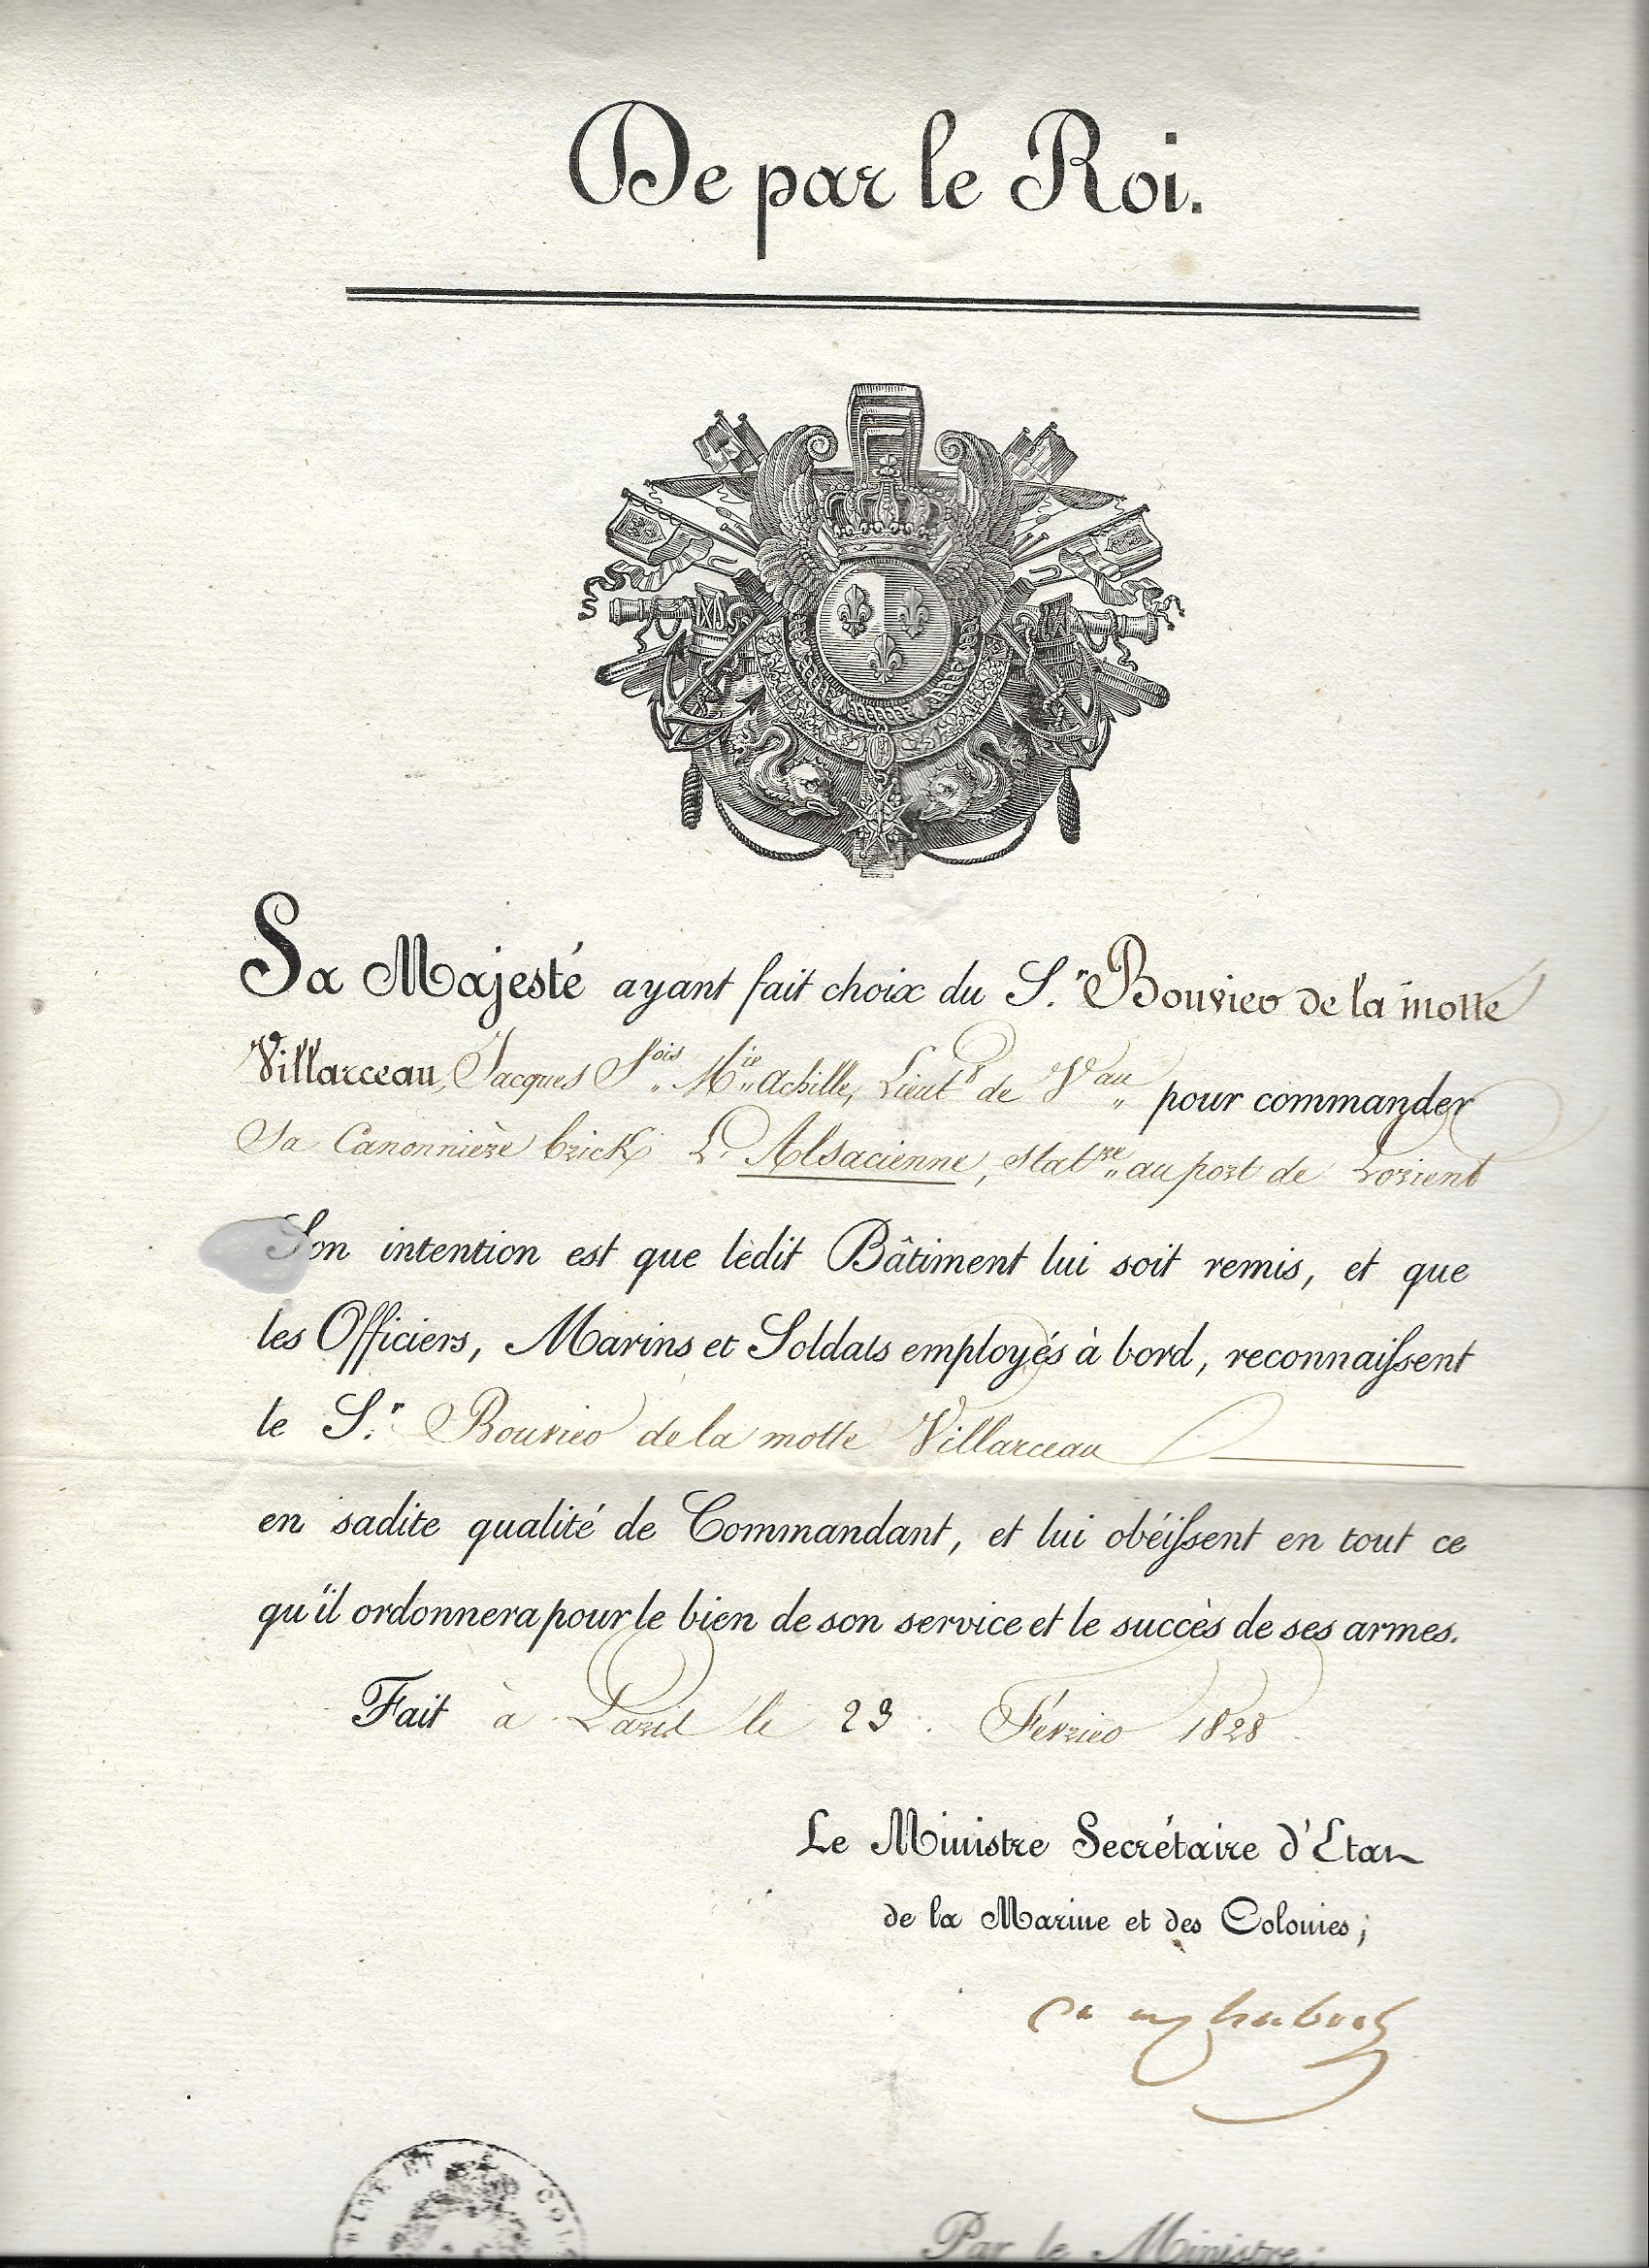 De par le Roi.
Sa Majesté ayant fait choix du S.r Bouvier de la motte
Villarceau, Jacques F.ois M.ie Achille, Lieut.t de V.au pour commander
Sa Canonnière brick L'Alsacienne, stat.re au port de Lorient
Son intention est que ledit Bâtiment lui soit remis, et que
les Officiers, Marins et Soldats employés à bord, reconnaiſsent
le S.r Bouvier de la motte Villarceau
en sadite qualité de Commandant, et lui obéiſsent en tout ce
qu'il ordonnera pour le bien de son service et le succès de ses armes.
Fait à Paris le 23 Février 1828.
Le Ministre Secrétaire d'Etat
de la Marine et des Colonies;
Par le Ministre: